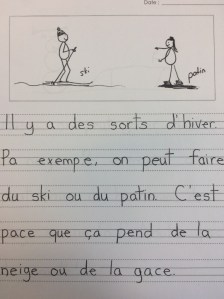 Date:
ski
patin
Il y a des sorts d'hiver.
Pa exempe, on peut faire
du ski ou du patin. C'est
pace que ça pend de la
neige ou de la gace.